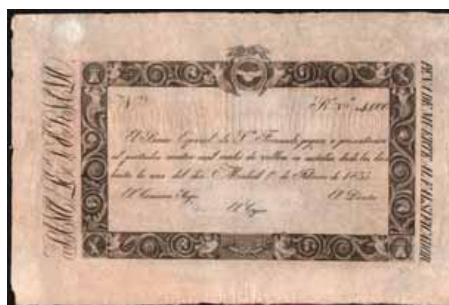 Nº Rs. vn. 4000
El Banco Español de Sn. Fernando pagará á presentacion
al portador cuatro mil reales de vellon en metálico desde las diez
hasta la una del dia. Madrid 1º de Febrero de 1835
El Comisario Regio El Director
El Cajero
PENA DE MUERTE AL FALSIFICADOR